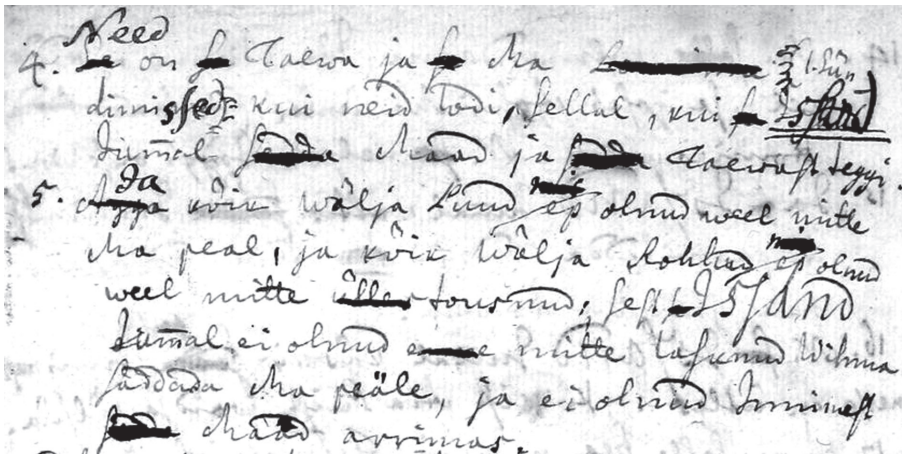 Need
4. on Taewa ja Ma sün
dimissed, kui neid lodi, sellal, kui Issand
Jum̄al Maad ja Taewast teggi.
5. ja kõik wälja Puud ep olnud weel mitte
Ma peal, ja kõik wälja Rohhud ep olnud
weel mitte tousnud; sest ISSAND
Jum̄al ei olnud mitte lasknud Wihma
saddada Ma peäle, ja ei olnud Innimest
Maad arrimas.